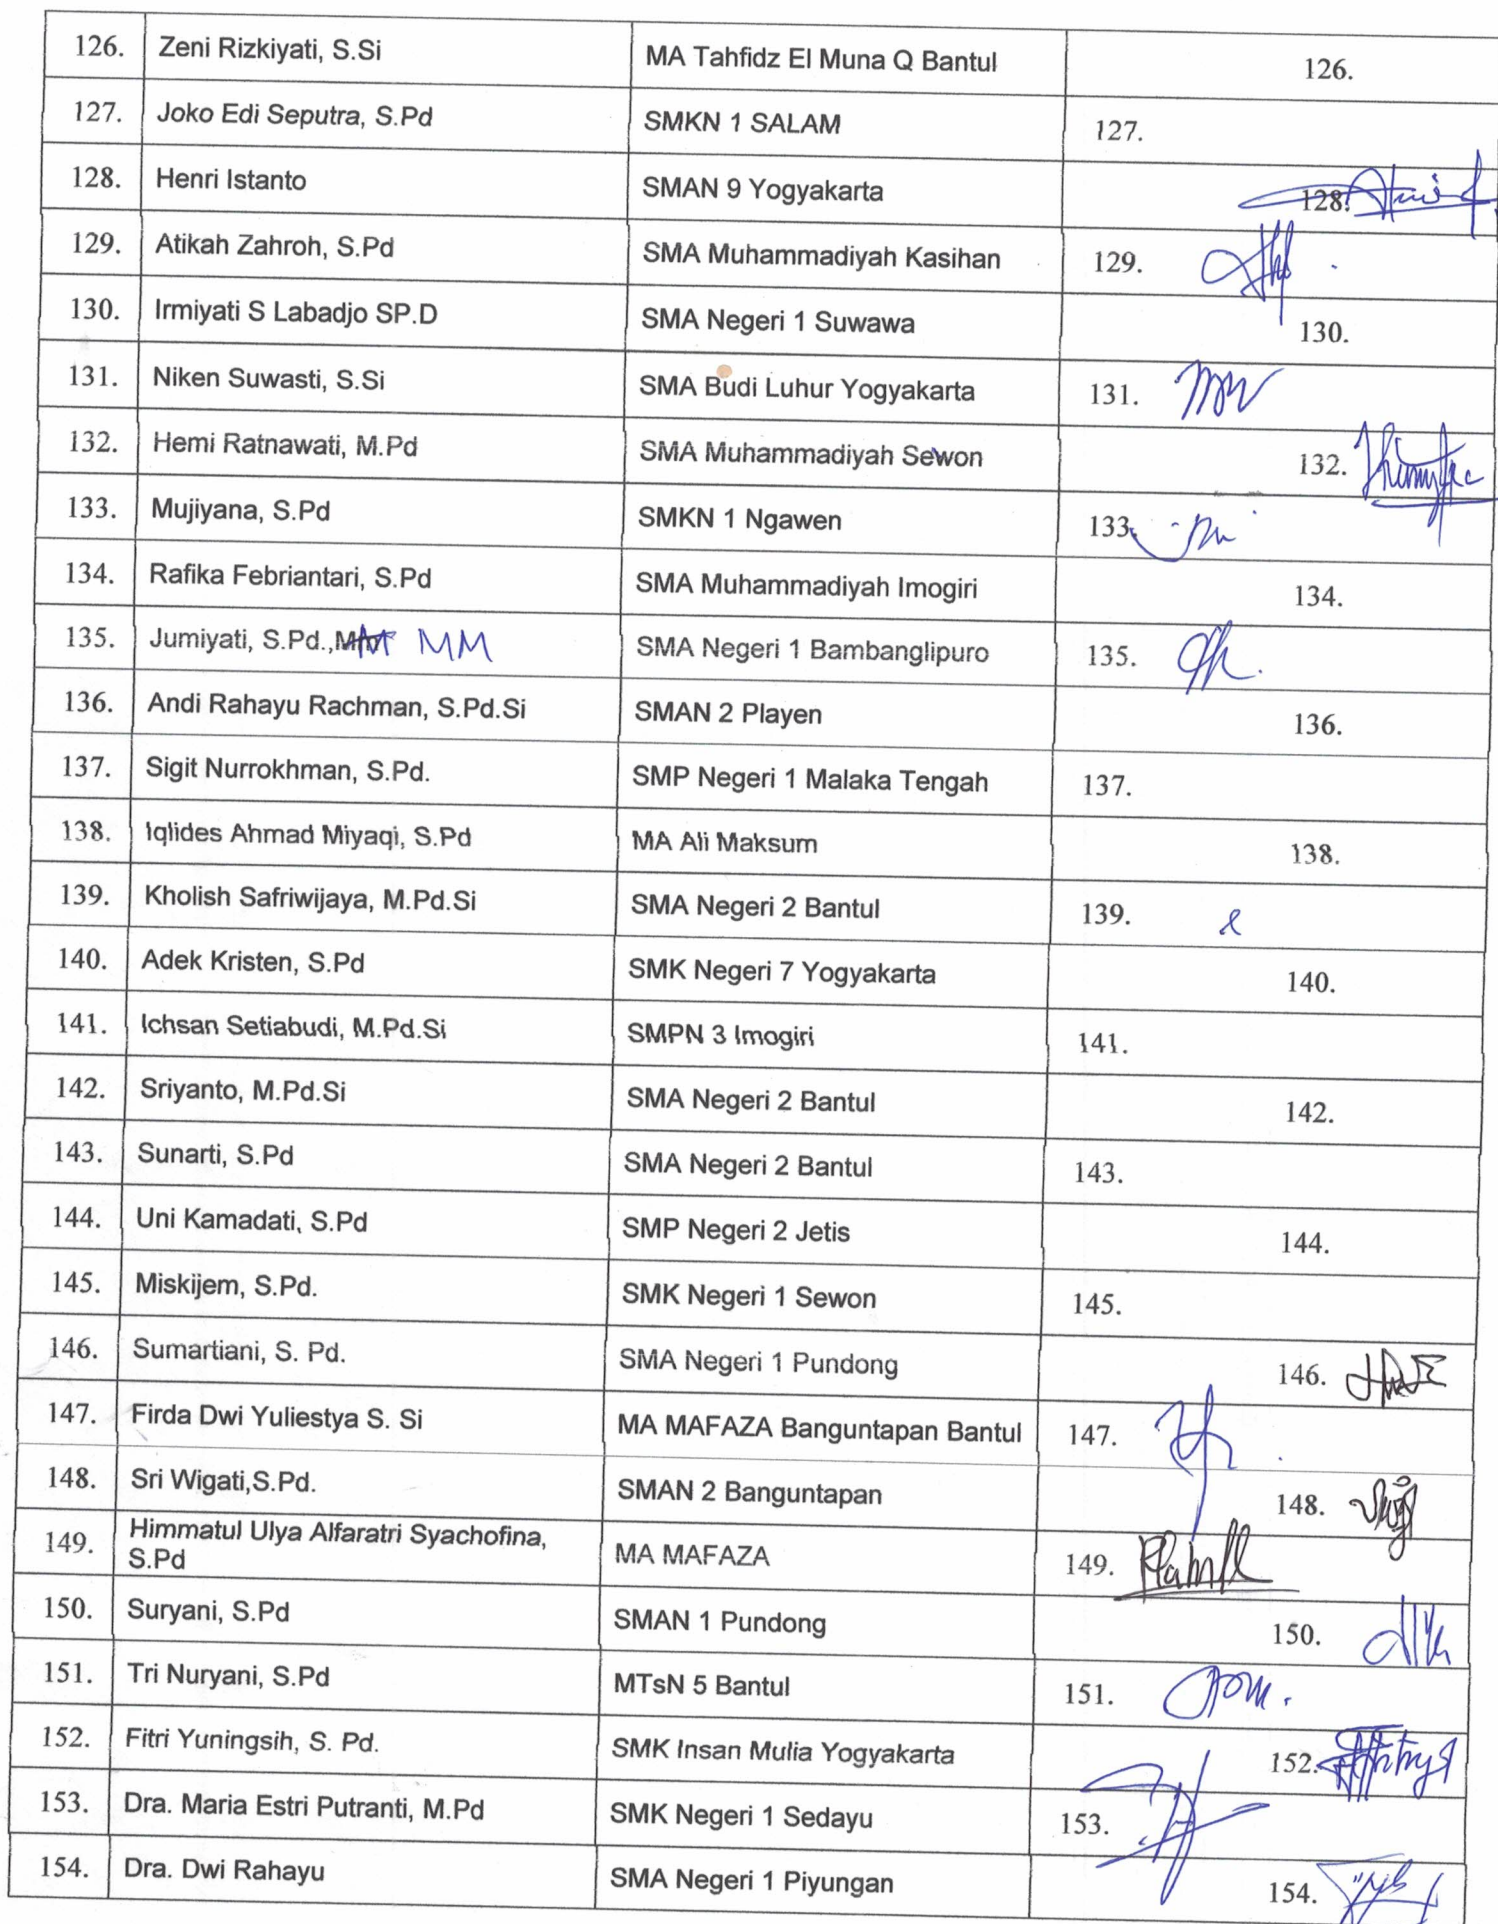 126. Zeni Rizkiyati, S.Si MA Tahfidz El Muna Q Bantul 126.
127. Joko Edi Seputra, S.Pd SMKN 1 SALAM 127.
128. Henri Istanto SMAN 9 Yogyakarta 128.
129. Atikah Zahroh, S.Pd SMA Muhammadiyah Kasihan 129.
130. Irmiyati S Labadjo SP.D SMA Negeri 1 Suwawa 130.
131. Niken Suwasti, S.Si SMA Budi Luhur Yogyakarta 131.
132. Hemi Ratnawati, M.Pd SMA Muhammadiyah Sewon 132.
133. Mujiyana, S.Pd SMKN 1 Ngawen 133.
134. Rafika Febriantari, S.Pd SMA Muhammadiyah Imogiri 134.
135. Jumiyati, S.Pd., MM SMA Negeri 1 Bambanglipuro 135.
136. Andi Rahayu Rachman, S.Pd.Si SMAN 2 Playen 136.
137. Sigit Nurrokhman, S.Pd. SMP Negeri 1 Malaka Tengah 137.
138. Iqlides Ahmad Miyaqi, S.Pd MA Ali Maksum 138.
139. Kholish Safriwijaya, M.Pd.Si SMA Negeri 2 Bantul 139.
140. Adek Kristen, S.Pd SMK Negeri 7 Yogyakarta 140.
141. Ichsan Setiabudi, M.Pd.Si SMPN 3 Imogiri 141.
142. Sriyanto, M.Pd.Si SMA Negeri 2 Bantul 142.
143. Sunarti, S.Pd SMA Negeri 2 Bantul 143.
144. Uni Kamadati, S.Pd SMP Negeri 2 Jetis 144.
145. Miskijem, S.Pd. SMK Negeri 1 Sewon 145.
146. Sumartiani, S. Pd. SMA Negeri 1 Pundong 146.
147. Firda Dwi Yuliestya S. Si MA MAFAZA Banguntapan Bantul 147.
148. Sri Wigati,S.Pd. SMAN 2 Banguntapan 148.
149. Himmatul Ulya Alfaratri Syachofina,
S.Pd MA MAFAZA 149.
150. Suryani, S.Pd SMAN 1 Pundong 150.
151. Tri Nuryani, S.Pd MTsN 5 Bantul 151.
152. Fitri Yuningsih, S. Pd. SMK Insan Mulia Yogyakarta 152.
153. Dra. Maria Estri Putranti, M.Pd SMK Negeri 1 Sedayu 153.
154. Dra. Dwi Rahayu SMA Negeri 1 Piyungan 154.